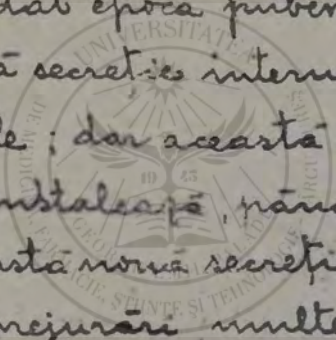 dat epoca puber
ă secreție intern
le ; dar această
instalează, până
astă nouă secreți
mrejurări multe
UNIVERSITATEA
DE MEDICINĂ, FARMACIE, ȘTIINȚE ȘI TEHNOLOGIE
GEORGE EMIL PALADE
1945